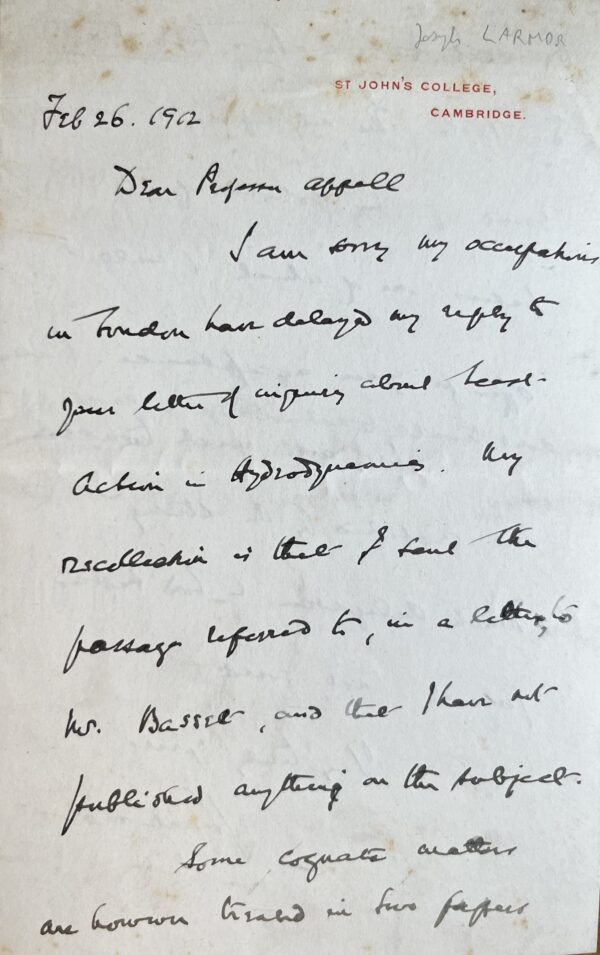 Joseph LARMOR
ST JOHN'S COLLEGE,
CAMBRIDGE.
Feb 26. 1912
Dear Professor Appell
I am sorry my occupations
in London have delayed my reply to
your letter of inquiry about Least-
Action in Hydrodynamics. My
recollection is that I sent the
passage referred to, in a letter, to
Mr. Basset, and that I have not
published anything on the subject.
Some cognate matters
are however treated in two papers